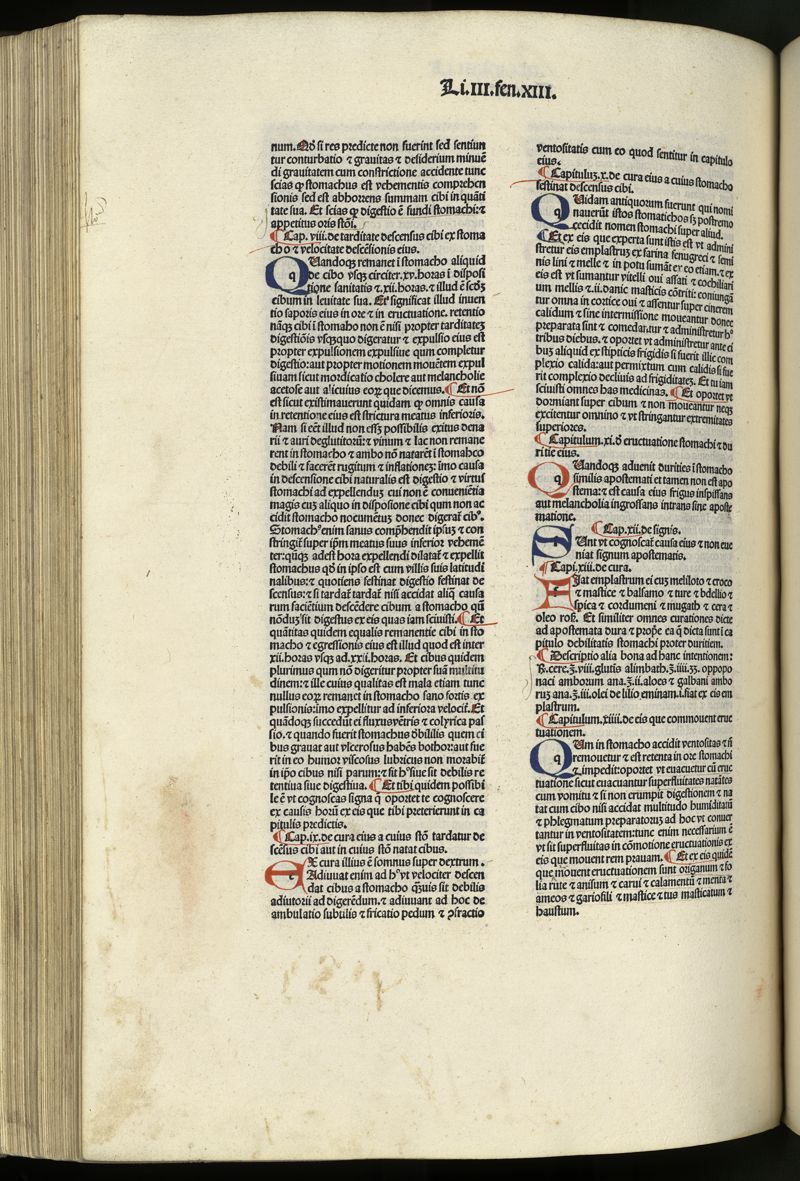 Li.III.fen.XIII.
num. Nō si res predicte non fuerint sed sentiun
tur conturbatio ⁊ grauitas ⁊ desiderium minuē
di grauitatem cum constrictione accidente tunc
scias ꝙ stomachus est vehementis comprehen
sionis sed est abhorrens summam cibi in quāti
tate sua. Et scias ꝙ digestio ē fundi stomachi: ⁊
appetitus oris stōi.
¶ Cap. viii. de tarditate descensus cibi ex stoma
cho ⁊ velocitate descēsionis eius.
QUandoqꝫ remanet ī stomacho aliquid
de cibo vsqꝫ circiter .xv. horas ī disposi
tione sanitatis ⁊ .xii. horas. ⁊ illud ē scđꝫ
cibum in leuitate sua. Et significat illud inuen
tio saporis eius in ore ⁊ in eructatione. retentio
nāqꝫ cibi ī stomaho non ē nisi propter tarditateꝫ
digestiōis vsqꝫquo digeratur ⁊ expulsio eius est
propter expulsionem expulsiue qum completur
digestio: aut propter motionem mouētem expul
siuam sicut mordicatio cholere aut melancholie
acetose aut alicuius eorꝝ que dicemus. ¶ Et nō
est sicut existimauerunt quidam ꝙ omnis causa
in retentione eius est strictura meatus inferioris.
Nam si eēt illud non esset possibilis exitus dena
rii ⁊ auri deglutitorū: ⁊ vinum ⁊ lac non remane
rent in stomacho ⁊ ambo nō natarēt ī stomahco
debili ⁊ facerēt rugitum ⁊ inflationeꝫ: īmo causa
in descensione cibi naturalis est digestio ⁊ virtus
stomachi ad expellenduꝫ cui non ē conueniētia
magis cuꝫ aliquo in dispositione cibi qum non ac
cidit stomacho nocumētuꝫ donec digerat̄ cibꝰ.
Stomachꝰ enim sanus comp̄hendit ipsuꝫ ⁊ con
stringit̄ super ip̄m meatus suus inferior vehemē
ter: qūqꝫ adest hora expellendi dilatat̄ ⁊ expellit
stomachus qđ in ipso est cum villis suis latitudi
nalibus: ⁊ quotiens festinat digestio festinat de
scensus: ⁊ si tardat̄ tardat̄ nisi accidat aliqͣ causa
rum faciētium descēdere cibum a stomacho qū
nōduꝫ sit digestus ex eis quas iam sciuisti. ¶ Et
quātitas quidem equalis remanentie cibi in sto
macho ⁊ egressionis eius est illud quod est inter
xii. horas vsqꝫ ad .xxii. horas. Et cibus quidem
plurimus qum nō digeritur propter suā multitu
dinem: ⁊ ille cuius qualitas est mala etiam tunc
nullus eorꝝ remanet in stomacho sano fortis ex
pulsionis: īmo expellitur ad inferiora velocit̄. Et
quādoqꝫ succedūt ei fluxus vētris ⁊ colyrica pas
sio. ⁊ quando fuerit stomachus đbililis quem ci
bus grauat aut vlcerosus habēs bothor: aut fue
rit in eo humor viscosus lubricus non morabit̄
in ip̄o cibus nisi parum: ⁊ sit hͦ siue sit debilis re
tentiua siue digestiua. ¶ Et tibi quidem possibi
le ē vt cognoscas signa qͥ oportet te cognoscere
ex causis horū ex eis que tibi preterierunt in ca
pitulis predictis.
¶ Cap. ix. de cura eius a cuius stō tardatur de
scēsus cibi aut in cuius stō natat cibus.
EX cura illius ē somnus super dextrum.
Adiuuat enim ad hͦ vt velociter descen
dat cibus a stomacho qͣuis sit debilis
adiutorii ad digerēdum. ⁊ adiuuant ad hoc de
ambulatio subtilis ⁊ fricatio pedum ⁊ ꝯfractio
ventositatis cum eo quod sentitur in capitulo
eius.
¶ Capituluꝫ .x. de cura eius a cuius stomacho
festinat descensus cibi.
QUidam antiquorum fuerunt qui nomi
nauerūt istos stomatichos sꝫ postremo
cecidit nomen stomachi super aliud.
¶ Et ex eis que experta sunt istis est vt admini
stretur eis emplastruꝫ ex farina fenugreci ⁊ semi
nis lini ⁊ melle ⁊ in potu sumāt̄ ex eo etiam. ⁊ ex
eis est vt sumantur vitelli oui assati ⁊ cochiliari
um mellis ⁊ .ii. danic masticis cōtriti: coniungā
tur omna in cortice oui ⁊ assentur super cinerem
calidum ⁊ sine intermissione moueantur donec
preparata sint ⁊ comedantur ⁊ administretur hͦ
tribus diebus. ⁊ oportet vt administretur ante ci
buꝫ aliquid ex stipticis frigidis si fuerit illic com
plexio calida: aut permixtum cum calidis si fue
rit complexio decliuis ad frigiditateꝫ. Et tu iam
sciuisti omnes has medicinas. ¶ Et oportet vt
dormiant super cibum ⁊ non moueantur neqꝫ
excitentur omnino ⁊ vt stringantur extremitates
superiores.
¶ Capitulum .xi. đ eructuatione stomachi ⁊ du
ritie eius.
QUandoqꝫ aduenit durities ī stomacho
similis apostemati et tamen non est apo
stema: ⁊ est causa eius frigus inspissans
aut melancholia ingrossans intrans sine aposte
matione.
¶ Cap. xii. de signis.
SUnt vt cognoscat̄ causa eius ⁊ non eue
niat signum apostematis.
¶ Capi. xiii. de cura.
FIat emplastrum ei cuꝫ meliloto ⁊ croco
⁊ mastice ⁊ balsamo ⁊ ture ⁊ bdellio ⁊
spica ⁊ cordumeni ⁊ mugath ⁊ cera ⁊
oleo roẜ. Et similiter omnes curationes dicte
ad apostemata dura ⁊ prop̄e ea ꝙ dicta sunt ī ca
pitulo debilitatis stomachi proter duritiem.
¶ Descriptio alia bona ad hanc intentionem:
℞. cere .℥. viii. glutis alimbath .℥. iiii. ℨ. oppopo
naci amborum ana .℥. ii. aloes ⁊ galbani ambo
ruꝫ ana .℥. iii. olei de lilio .eminam. i. fiat ex eis em
plastrum.
¶ Capitulum .xiiii. de eis que commouent eruc
tuationem.
QUm in stomacho accidit ventositas ⁊ ñ
remouetur ⁊ est retenta in ore stomachi
⁊ impedit: oportet vt euacuetur cū eruc
tuatione sicut euacuantur superfluitates natātes
cum vomitu ⁊ si non erumpit digestionem ⁊ na
tat cum cibo nisi accidat multitudo humiditatū
⁊ phlegmatum preparatorum ad hoc vt conuer
tantur in ventositatem: tunc enim necessarium ē
vt sit superfluitas in cōmotione eructuationis ex
eis que mouent rem prauam. ¶ Et ex eis quidē
que mouent eructuationem sunt origanum ⁊ fo
lia rute ⁊ anisum ⁊ carui ⁊ calamentū ⁊ menta ⁊
ameos ⁊ gariofili ⁊ mastice ⁊ tus masticatum ⁊
haustum.